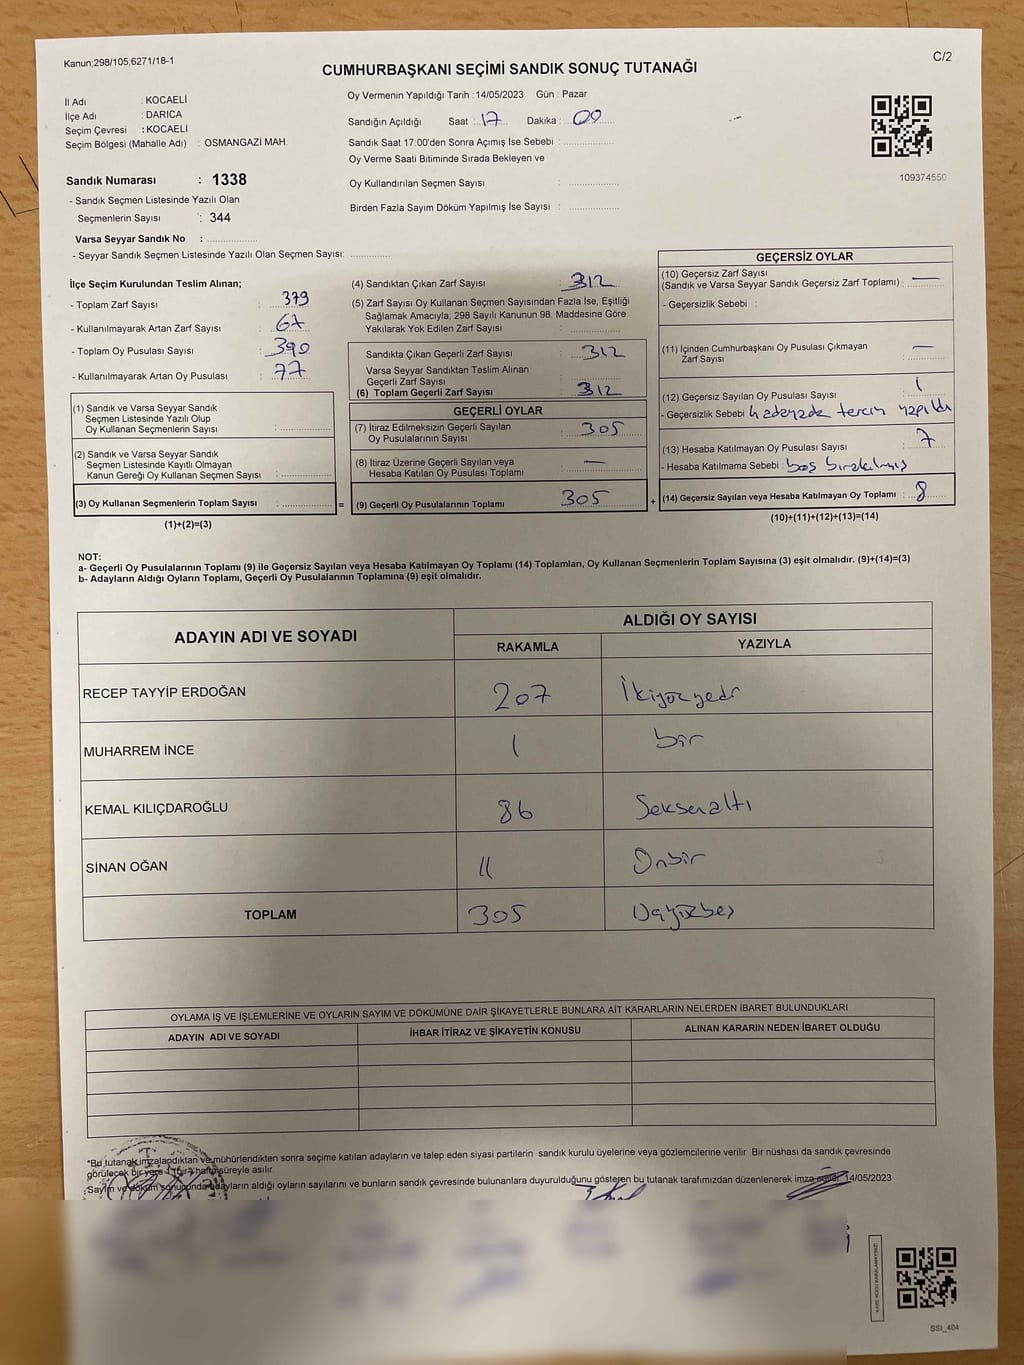 Kanun;298/105;6271/18-1
C/2
CUMHURBAŞKANI SEÇİMİ SANDIK SONUÇ TUTANAĞI
İl Adı : KOCAELİ
İlçe Adı : DARICA
Seçim Çevresi : KOCAELİ
Seçim Bölgesi (Mahalle Adı) : OSMANGAZİ MAH.
Oy Vermenin Yapıldığı Tarih : 14/05/2023 Gün : Pazar
Sandığın Açıldığı Saat : 17 Dakika : 00
Sandık Saat 17:00'den Sonra Açımış İse Sebebi :
Oy Verme Saati Bitiminde Sırada Bekleyen ve
Oy Kullandırılan Seçmen Sayısı :
Birden Fazla Sayım Döküm Yapılmış İse Sayısı :
109374550
Sandık Numarası : 1338
- Sandık Seçmen Listesinde Yazılı Olan
Seçmenlerin Sayısı : 344
Varsa Seyyar Sandık No :
- Seyyar Sandık Seçmen Listesinde Yazılı Olan Seçmen Sayısı:
İlçe Seçim Kurulundan Teslim Alınan;
- Toplam Zarf Sayısı : 379
- Kullanılmayarak Artan Zarf Sayısı : 67
- Toplam Oy Pusulası Sayısı : 390
- Kullanılmayarak Artan Oy Pusulası : 77
(1) Sandık ve Varsa Seyyar Sandık
Seçmen Listesinde Yazılı Olup
Oy Kullanan Seçmenlerin Sayısı :
(2) Sandık ve Varsa Seyyar Sandık
Seçmen Listesinde Kayıtlı Olmayan
Kanun Gereği Oy Kullanan Seçmen Sayısı :
(3) Oy Kullanan Seçmenlerin Toplam Sayısı :
(1)+(2)=(3)
(4) Sandıktan Çıkan Zarf Sayısı : 312
(5) Zarf Sayısı Oy Kullanan Seçmen Sayısından Fazla İse, Eşitliği
Sağlamak Amacıyla; 298 Sayılı Kanunun 98. Maddesine Göre
Yakılarak Yok Edilen Zarf Sayısı :
Sandıkta Çıkan Geçerli Zarf Sayısı : 312
Varsa Seyyar Sandıktan Teslim Alınan
Geçerli Zarf Sayısı :
(6) Toplam Geçerli Zarf Sayısı : 312
GEÇERLİ OYLAR
(7) İtiraz Edilmeksizin Geçerli Sayılan
Oy Pusulalarının Sayısı : 305
(8) İtiraz Üzerine Geçerli Sayılan veya
Hesaba Katılan Oy Pusulası Toplamı : —
= (9) Geçerli Oy Pusulalarının Toplamı 305 +
GEÇERSİZ OYLAR
(10) Geçersiz Zarf Sayısı
(Sandık ve Varsa Seyyar Sandık Geçersiz Zarf Toplamı) : —
- Geçersizlik Sebebi :
(11) İçinden Cumhurbaşkanı Oy Pusulası Çıkmayan
Zarf Sayısı : —
(12) Geçersiz Sayılan Oy Pusulası Sayısı : 1
- Geçersizlik Sebebi tercih yapıldı
(13) Hesaba Katılmayan Oy Pusulası Sayısı : 7
- Hesaba Katılmama Sebebi : boş bırakılmış
(14) Geçersiz Sayılan veya Hesaba Katılmayan Oy Toplamı : 8
(10)+(11)+(12)+(13)=(14)
NOT:
a- Geçerli Oy Pusulalarının Toplamı (9) ile Geçersiz Sayılan veya Hesaba Katılmayan Oy Toplamı (14) Toplamları, Oy Kullanan Seçmenlerin Toplam Sayısına (3) eşit olmalıdır. (9)+(14)=(3)
b- Adayların Aldığı Oyların Toplamı, Geçerli Oy Pusulalarının Toplamına (9) eşit olmalıdır.
ADAYIN ADI VE SOYADI
ALDIĞI OY SAYISI
RAKAMLA YAZIYLA
RECEP TAYYİP ERDOĞAN 207 İkiyüzyedi
MUHARREM İNCE 1 bir
KEMAL KILIÇDAROĞLU 86 Seksenaltı
SİNAN OĞAN 11 Onbir
TOPLAM 305 Üçyüzbeş
OYLAMA İŞ VE İŞLEMLERİNE VE OYLARIN SAYIM VE DÖKÜMÜNE DAİR ŞİKAYETLERLE BUNLARA AİT KARARLARIN NELERDEN İBARET BULUNDUKLARI
ADAYIN ADI VE SOYADI İHBAR İTİRAZ VE ŞİKAYETİN KONUSU ALINAN KARARIN NEDEN İBARET OLDUĞU
*Bu tutanak imzalandıktan ve mühürlendikten sonra seçime katılan adayların ve talep eden siyasi partilerin sandık kurulu üyelerine veya gözlemcilerine verilir. Bir nüshası da sandık çevresinde
görülecek bir yere 1 (bir) hafta süreyle asılır.
Sayım ve döküm sonucunda adayların aldığı oyların sayılarını ve bunların sandık çevresinde bulunanlara duyurulduğunu gösteren bu tutanak tarafımızdan düzenlenerek imza edildi. 14/05/2023
SSI_404